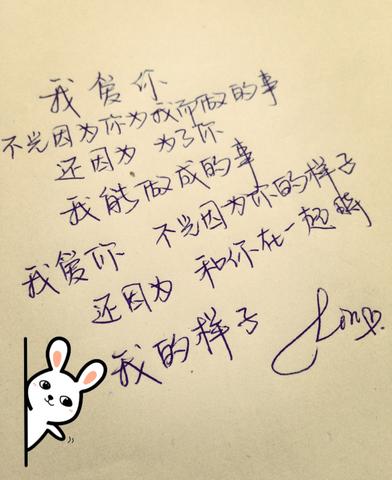 我爱你
不光因为你为我而做的事
还因为 为了你
我能做成的事
我爱你 不光因为你的样子
还因为 和你在一起时
我的样子